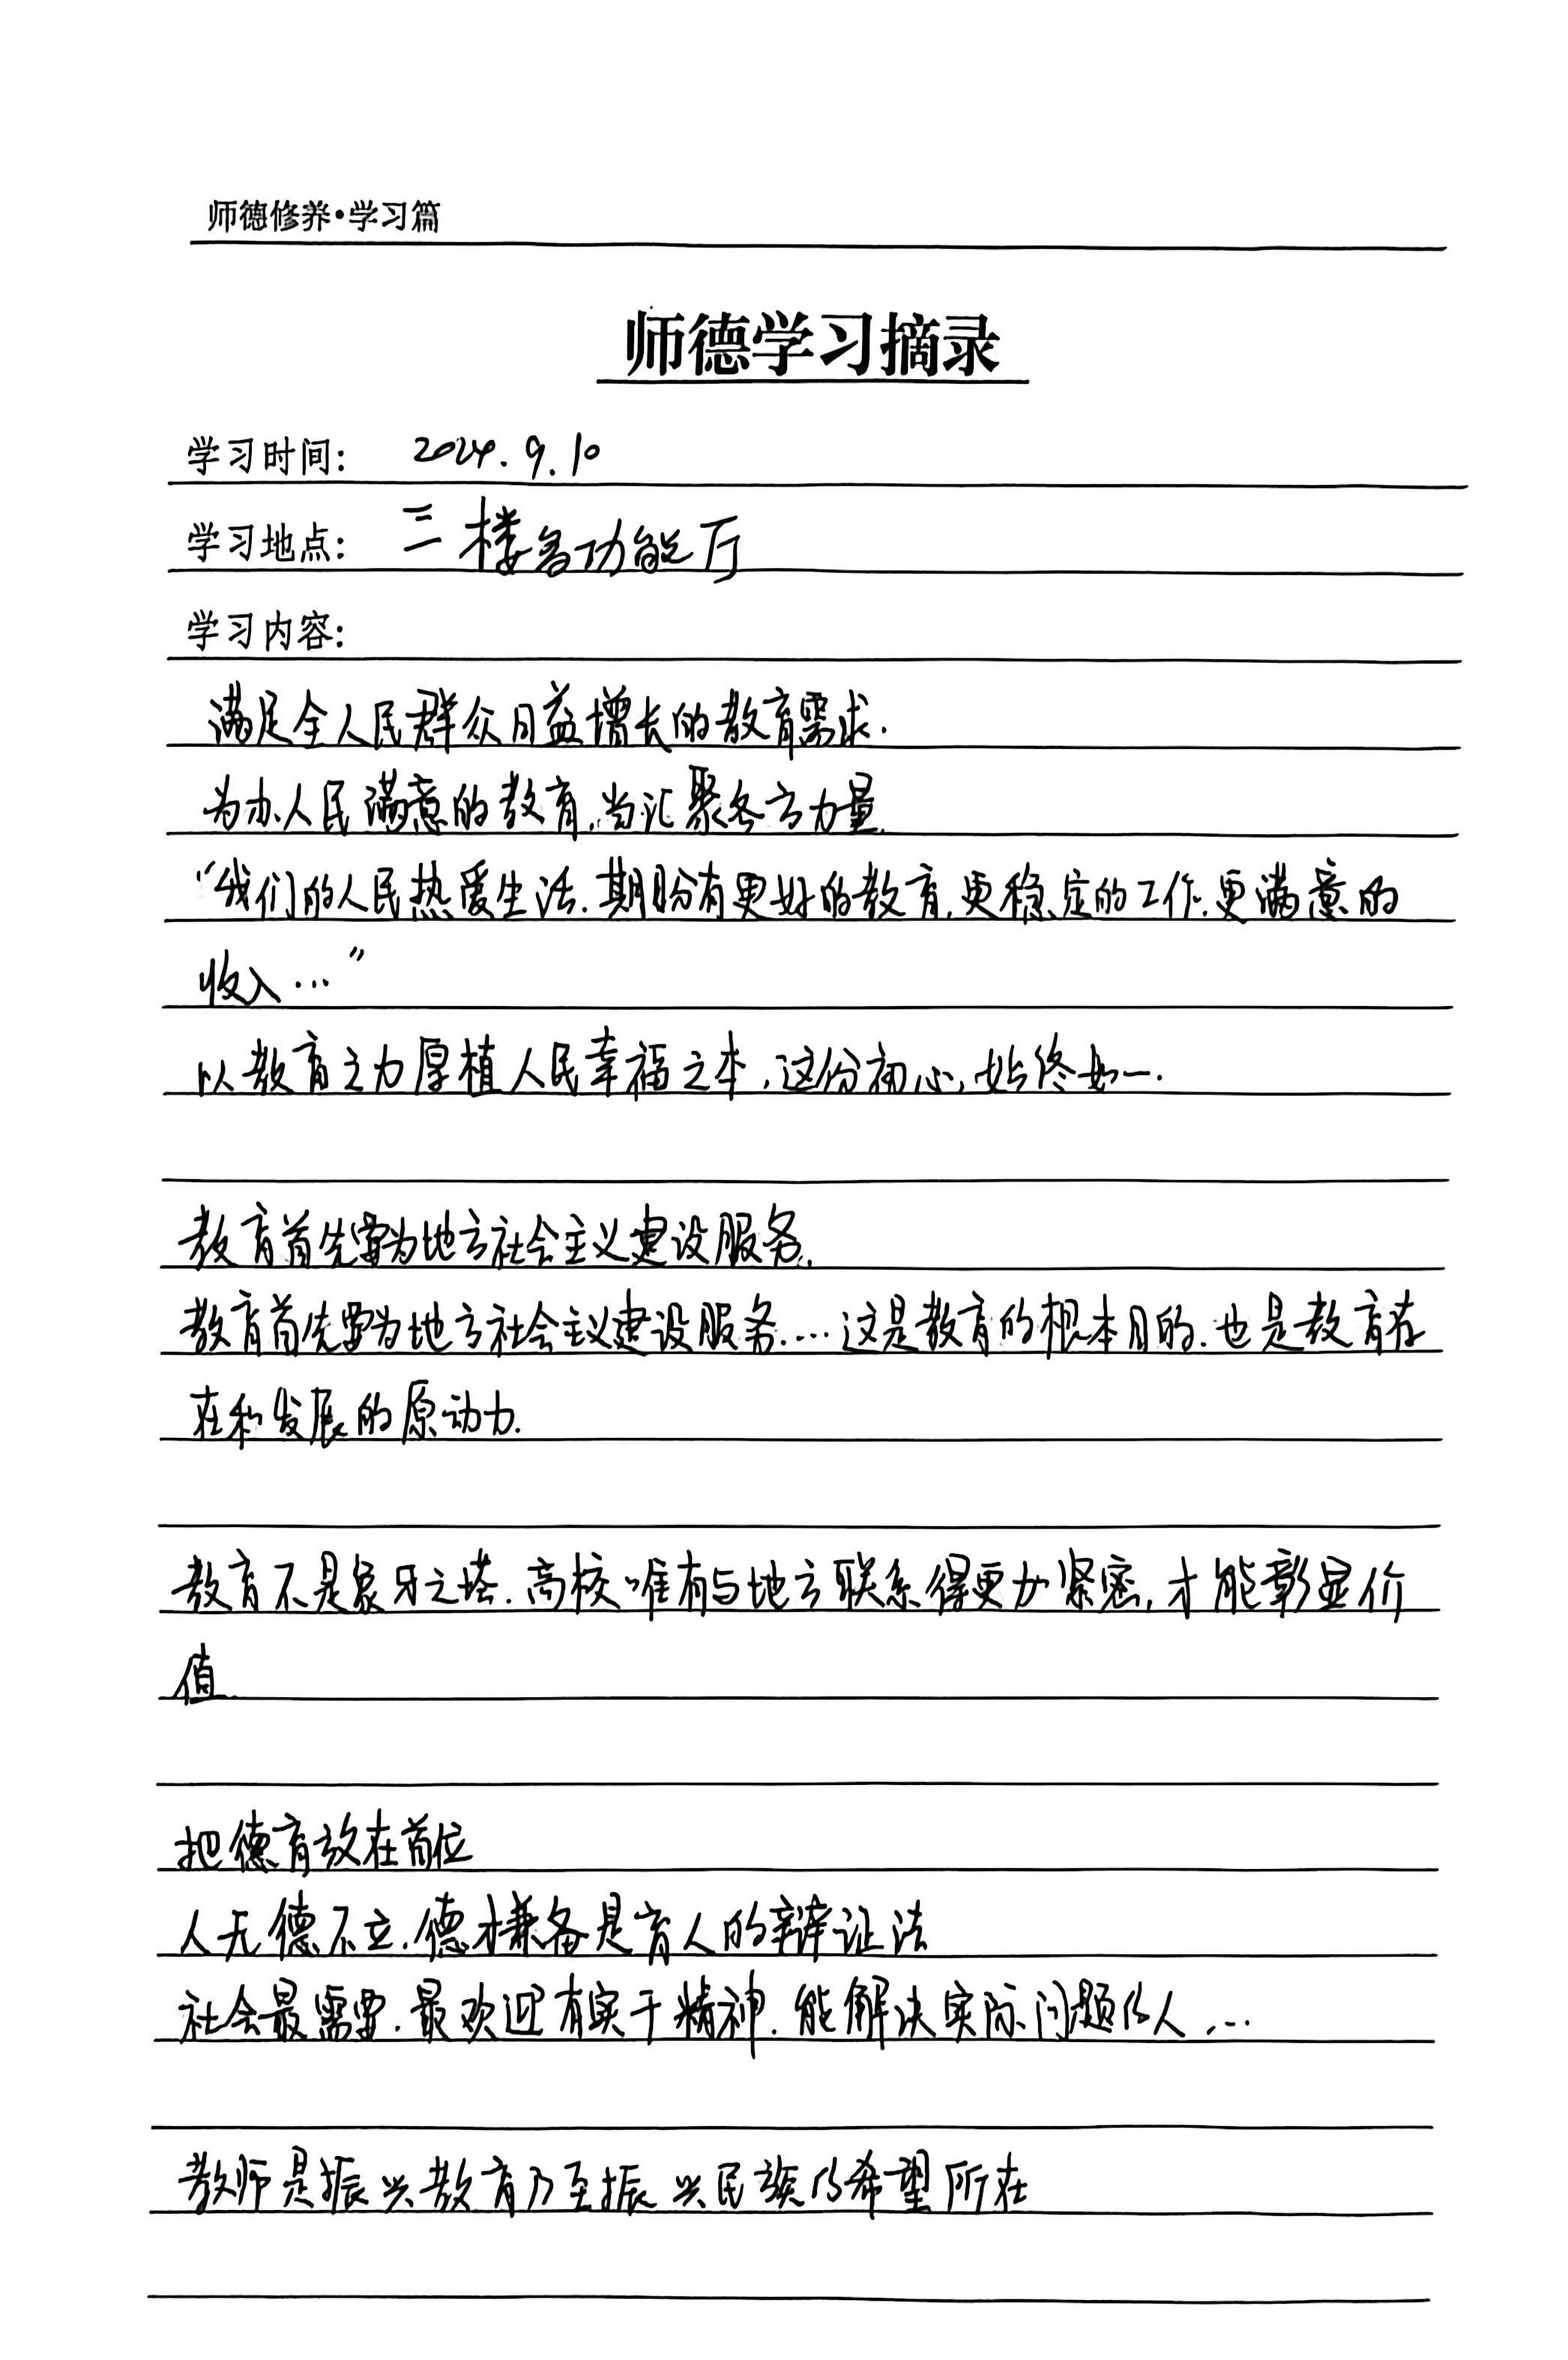 师德修养·学习篇
师德学习摘录
学习时间: 2024.9.10
学习地点: 三楼多功能厅
学习内容:
满足全人民群众日益增长的教育需求.
为办人民满意的教育,当汇聚各方力量.
“我们的人民热爱生活.期盼有更好的教育.更稳定的工作.更满意的
收入…”
以教育之力厚植人民幸福之本,这份初心,始终如一.
教育首先要为地方社会主义建设服务.
教育首先要为地方社会主义建设服务.…这是教育的根本目的.也是教育存
在和发展的原动力.
教育不是象牙之塔.高校唯有与地方联系得更加紧密,才能彰显价
值.
把德育放在首位
人无德不立.德才兼备是育人的辩证法
社会最需要.最欢迎有实干精神.能解决实际问题的人…
教师是振兴教育乃至振兴民族的希望所在